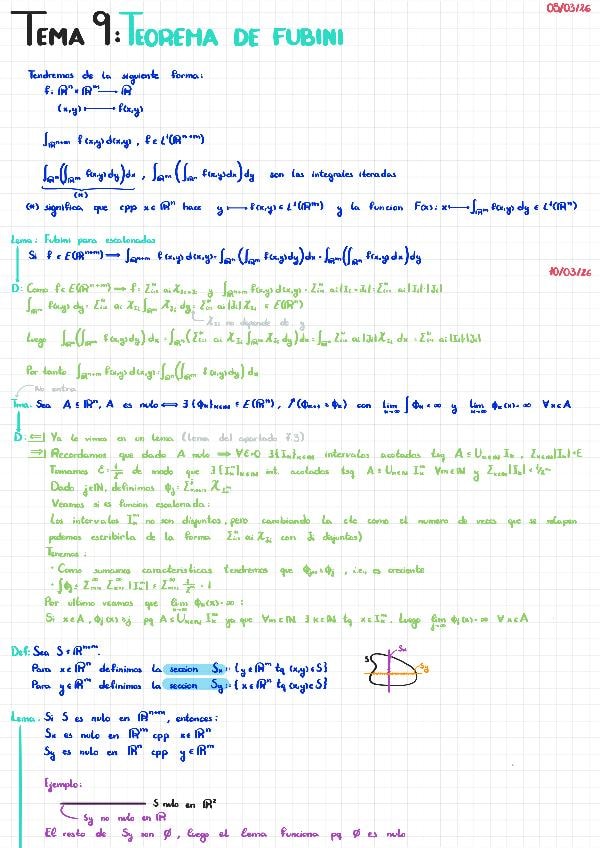 05/03/26
TEMA 9: TEOREMA DE FUBINI
Tendremos de la siguiente forma:
f: ℝⁿ × ℝᵐ ⟶ ℝ
(x,y) ⟼ f(x,y)
∫ℝⁿ⁺ᵐ f(x,y) d(x,y) , f ∈ L¹(ℝⁿ⁺ᵐ)
∫ℝⁿ(∫ℝᵐ f(x,y)dy)dx , ∫ℝᵐ(∫ℝⁿ f(x,y)dx)dy son las integrales iteradas
(*)
(*) significa que cpp x∈ℝⁿ hace y ⟼ f(x,y) ∈ L¹(ℝᵐ) y la funcion F(x): x ⟼ ∫ℝᵐ f(x,y) dy ∈ L¹(ℝⁿ)
Lema: Fubini para escalonadas
Si f ∈ E(ℝⁿ⁺ᵐ) ⟹ ∫ℝⁿ⁺ᵐ f(x,y) d(x,y) = ∫ℝⁿ(∫ℝᵐ f(x,y)dy)dx = ∫ℝᵐ(∫ℝⁿ f(x,y)dx)dy
10/03/26
D: Como f ∈ E(ℝⁿ⁺ᵐ) ⟹ f =
χ no depende de y
Luego
Por tanto ∫ℝⁿ⁺ᵐ f(x,y) d(x,y) = ∫ℝⁿ(∫ℝᵐ f(x,y)dy) dx
No entra
Tma: Sea A ⊆ ℝⁿ, A es nulo ⟺ ∃ {ϕₖ}ₖ∈ℕ ∈ E(ℝⁿ), ↗(ϕₖ₊₁ ≥ ϕₖ) con lim ∫ϕₖ < ∞ y lim ϕₖ(x) = ∞ ∀x∈A
D: ⟸| Ya lo vimos en un lema (lema del apartado 7.3)
⟹| Recordamos que dado A nulo ⟹ ∀ε>0 ∃{Iₖ}ₖ∈ℕ intervalos acotados tsq A ⊆ ∪ₖ∈ℕ Iₖ , Σₖ∈ℕ|Iₖ| < ε
Tomamos ε = 1/2ᵐ de modo que ∃{Iₖᵐ}ₖ∈ℕ int. acotados tsq A ⊆ ∪ₖ∈ℕ Iₖᵐ ∀m∈ℕ y Σₖ∈ℕ|Iₖ| < 1/2ᵐ
Dado j∈ℕ, definimos
Veamos si es funcion escalonada:
Los intervalos Iₖᵐ no son disjuntos, pero cambiando la cte como el numero de veces que se solapan
podemos escribirla de la forma Σ aᵢ χ con Jᵢ disjuntos)
Tenemos:
· Como sumamos caracteristicas tendremos que ϕⱼ₊₁ ≥ ϕⱼ , i.e., es creciente
Por ultimo veamos que lim ϕₖ(x) = ∞ :
Si x∈A, ϕⱼ(x) ≥ j pq A ⊆ ∪ₖ∈ℕ Iₖᵐ ya que ∀m∈ℕ ∃ k∈ℕ tq x∈Iₖᵐ. Luego lim ϕⱼ(x) = ∞ ∀x∈A
Def: Sea S ⊆ ℝⁿ⁺ᵐ.
Para x∈ℝⁿ definimos la seccion Sₓ = {y∈ℝᵐ tq (x,y)∈S}
Para y∈ℝᵐ definimos la seccion Sy = {x∈ℝⁿ tq (x,y)∈S}
S
Sₓ
Sy
Lema: Si S es nulo en ℝⁿ⁺ᵐ, entonces:
Sₓ es nulo en ℝᵐ cpp x∈ℝⁿ
Sy es nulo en ℝⁿ cpp y∈ℝᵐ
Ejemplo:
S nulo en ℝ²
Sy no nulo en ℝ
El resto de Sy son ∅, luego el lema funciona pq ∅ es nulo